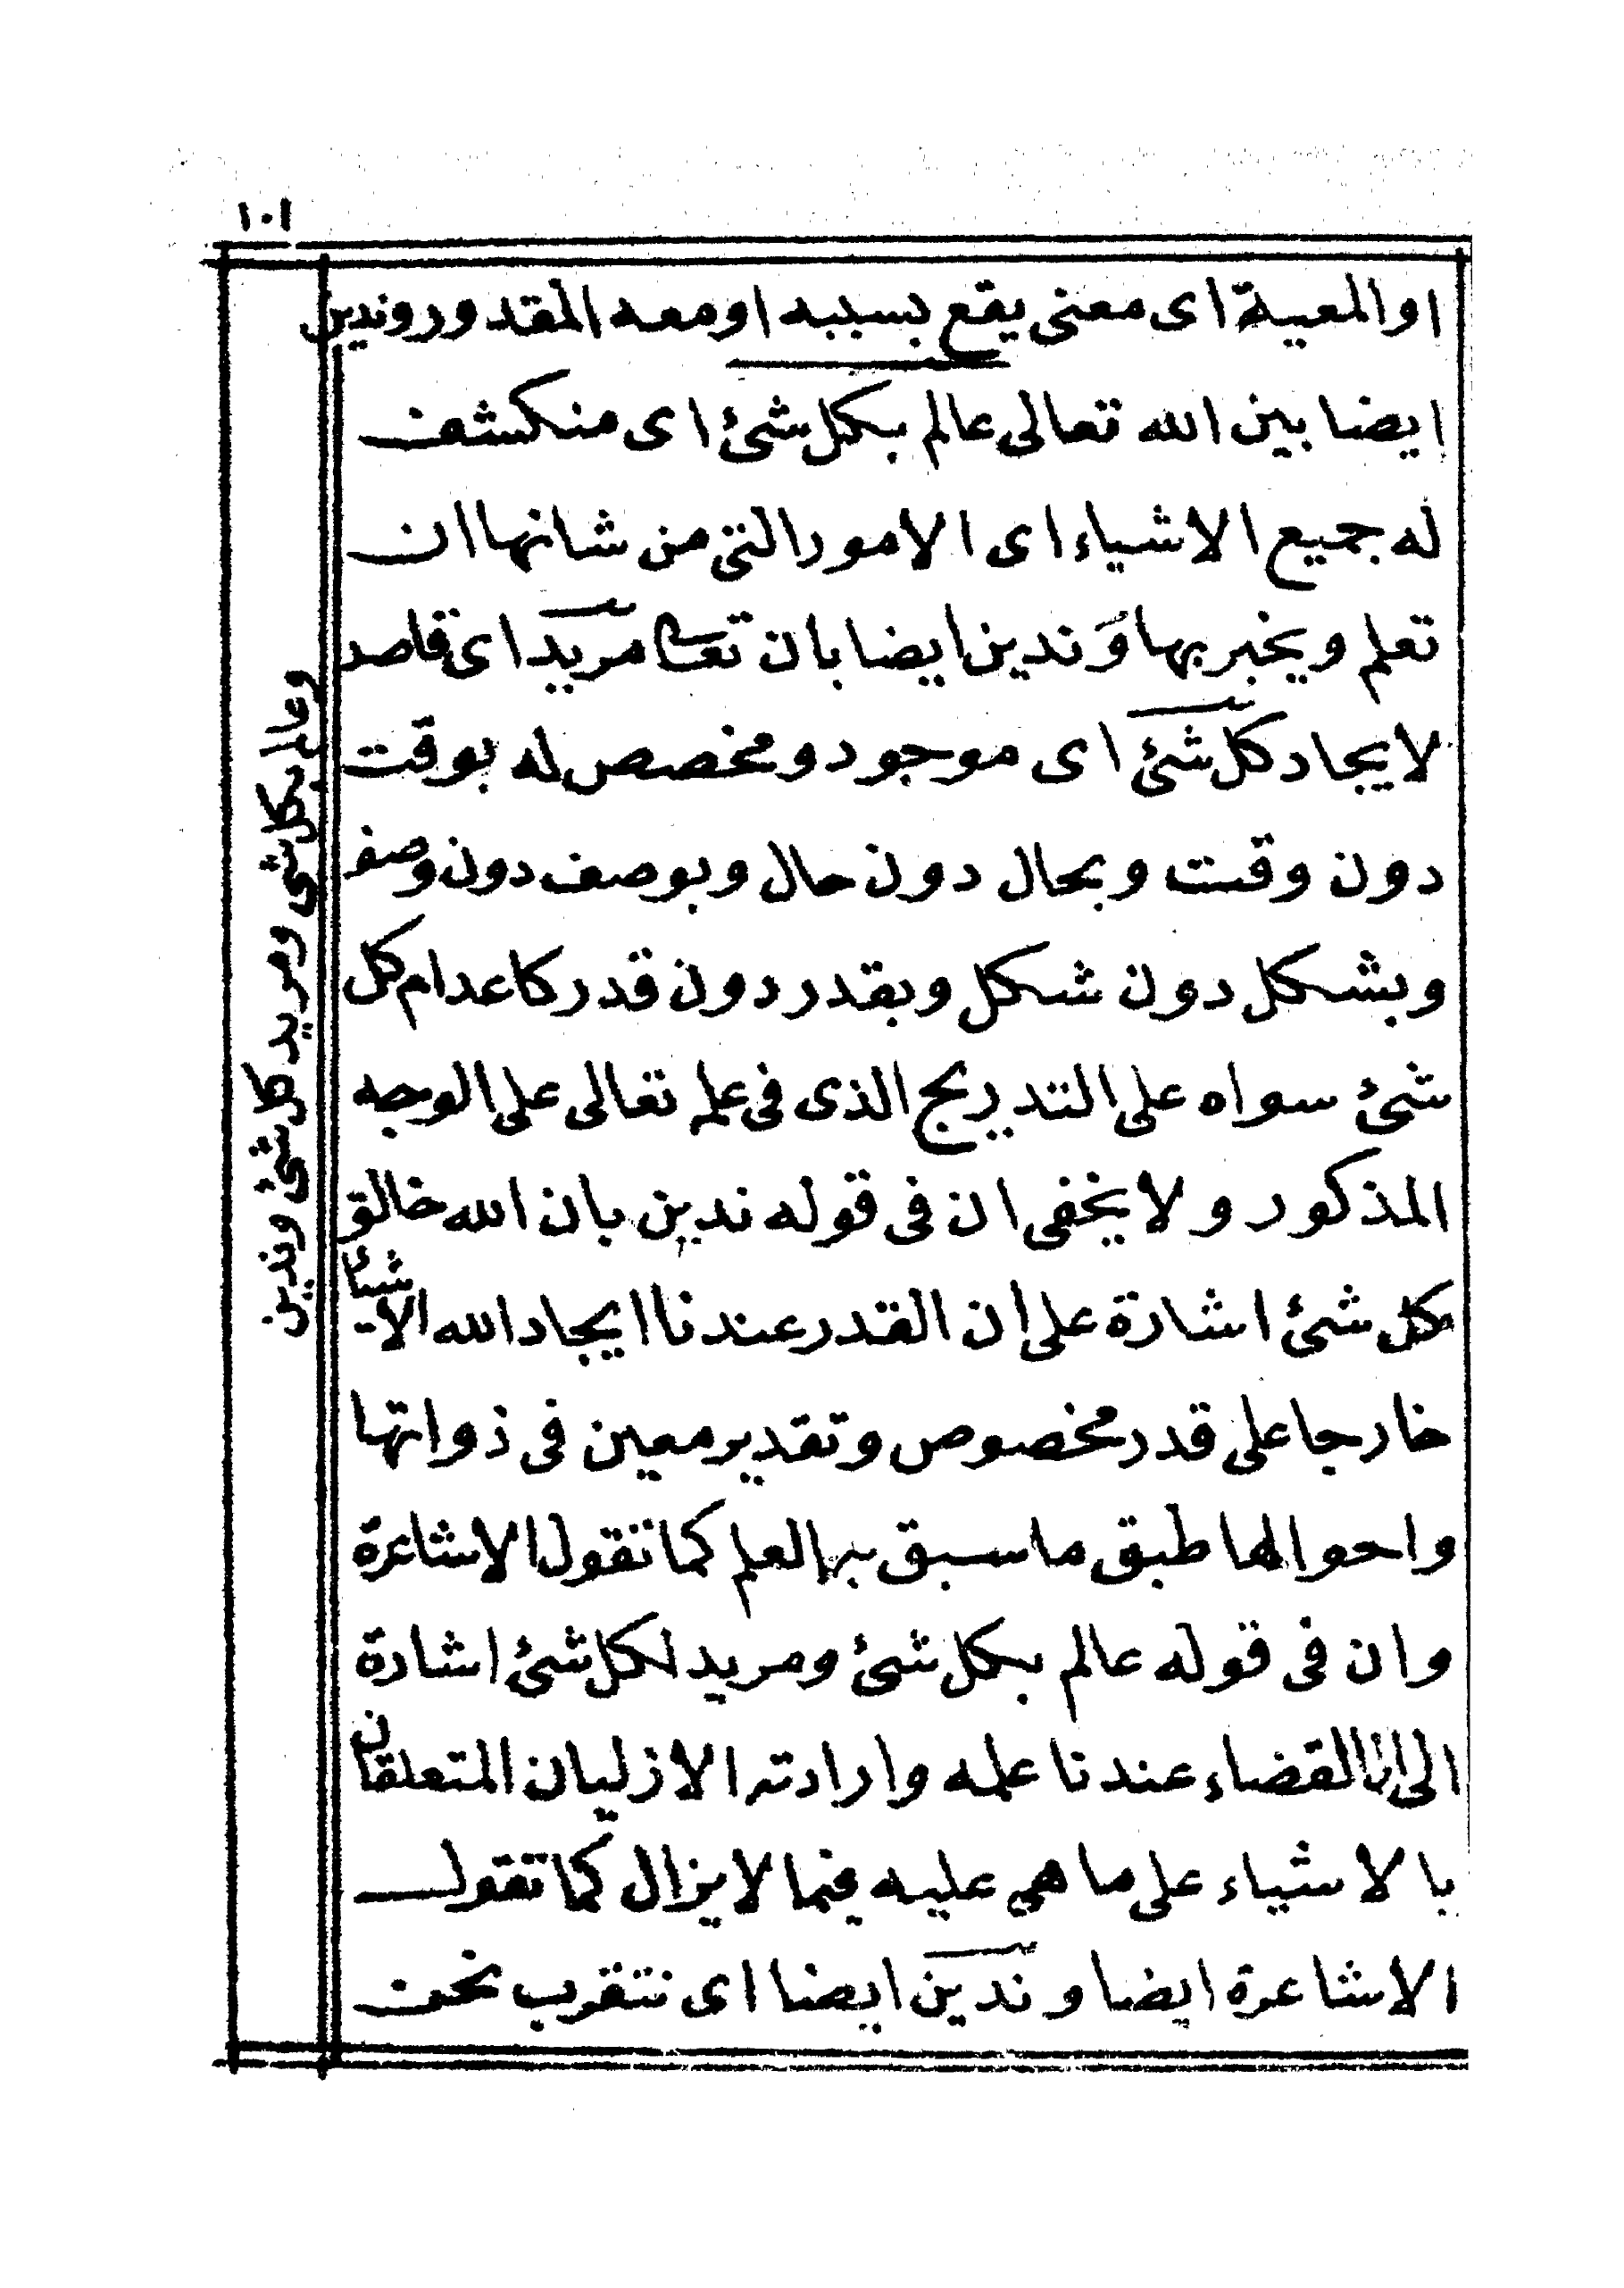 ١٠١
او المعية اى معنى يقع بسببه او معه المقدور وندين
ايضا بين الله تعالى عالم بكل شئ اى منكشف
له جميع الاشياء اى الامور التى من شانها ان
تعلم ويخبر بها وَندين ايضا بان تعالى مريد اى قاصد
لايجاد كل شئ اى موجود ومخصص له بوقت
دون وقت وبحال دون حال وبوصف دون وصف
وبشكل دون شكل وبقدر دون قدر كاعدام كل
شئ سواه على التدريج الذى فى علمه تعالى على الوجه
المذكور ولا يخفى ان فى قوله ندين بان الله خالق
كل شئ اشارة على ان القدر عندنا ايجاد الله الاشياء
خارجا على قدر مخصوص وتقدير معين فى ذواتها
واحوالها طبق ما سبق بها العلم كما تقول الاشاعرة
وان فى قوله عالم بكل شئ ومريد لكل شئ اشارة
الى ان القضاء عندنا علمه وارادته الازليان المتعلقان
بالاشياء على ما هى عليه فيما لا يزال كما تقول
الاشاعرة ايضا وندين ايضا اى نتقرب نحن
وعالم بكل شى ومريد كل شئ وندين